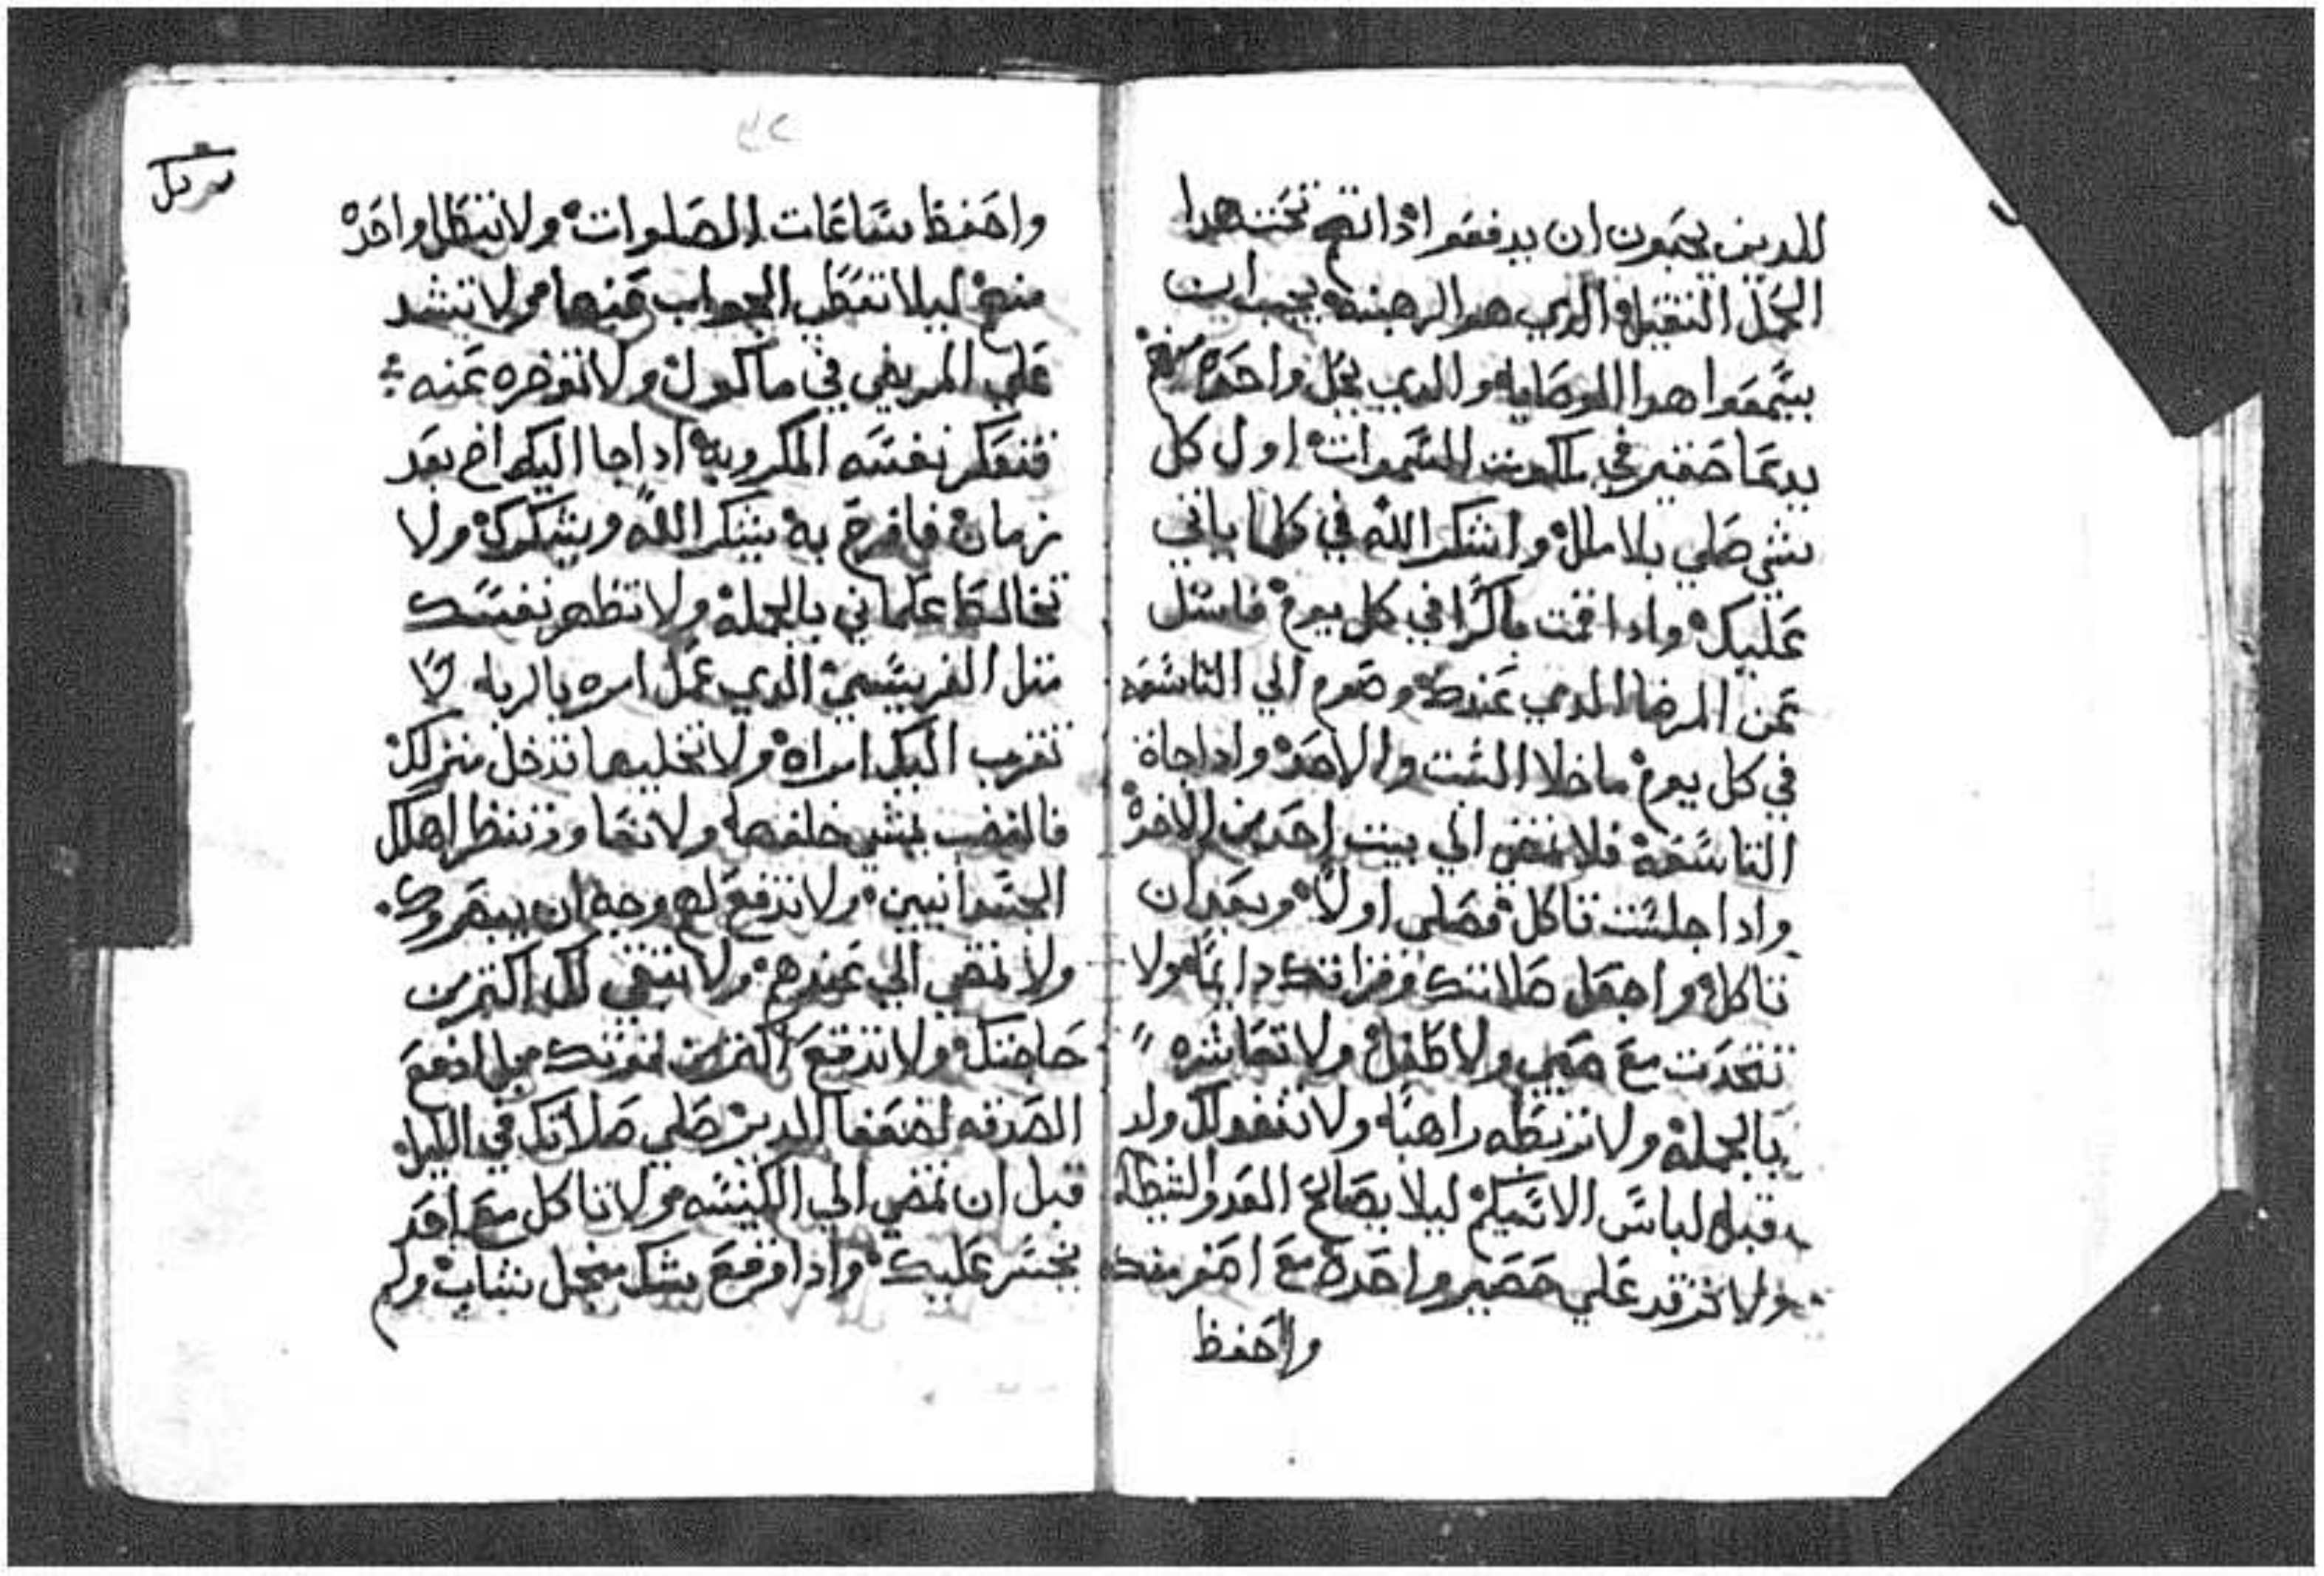 للدين يحبون ان يدفعو ادانهم تحت هدا
الحمل التقيل والدي هو الرهبنه يجب ان
يسمعوا هدا الوصايا والدي يخل واحده منهم
يدعا صغير في ملكوت السموات اول كل
شي صلي بلا ملل واشكر الله في كلما ياتي
عليك وادا قمت باكرا في كل يوم فاسل
عن المرضا الدي عندك وصوم الي التاسعه
في كل يوم ما خلا السبت والاحد وادا جاة
التاسعة فلا تمضي الي بيت احد من الاخوة
وادا جلست تاكل فصلي اولا وبعد ان
تاكل واجعل صلاتك وقراتك دايما ولا
تتحدت مع صبي ولا طفل ولا تعاشره
بالجملة ولا تربطه راهبا ولا تقول ولد
قبل لباس الاسكيم ليلا يصالح العدو الشيطان
ولا ترقد علي حصير واحدة مع اصغر منك
واحفظ
٣٢
واحفظ ساعات الصلوات ولا تبطل واحده
منهم ليلا تعطي الجواب عنها ولا تشد
علي المريض في ماكول ولا توخره عنه
فتعكر نفسه المكروبه ادا جا اليك اخ بعد
زمان فافرح به يشكر الله ويشكرك ولا
تخالط علماني بالجملة ولا تظهر نفسك
متل الفريسي الدي عمل امره بالريا لا
تقرب اليك امراه ولا تخليها تدخل منزلك
فالغضب يمشي خلفها ولا تعاود تنظر اهلك
الجسدانيين ولا تدفع لهم وجه ان يبصروك
ولا تمضي الي عندهم ولا تبقي لك اكتر من
حاجتك ولا تدفع اكتر من قوتك بل ادفع
الصدقه لضعفا الدير صلي صلاتك في الليل
قبل ان تمضي الي الكنيسه ولا تاكل مع احد
يخسر عليك وادا وقع بيدك منجل نشاب ولم